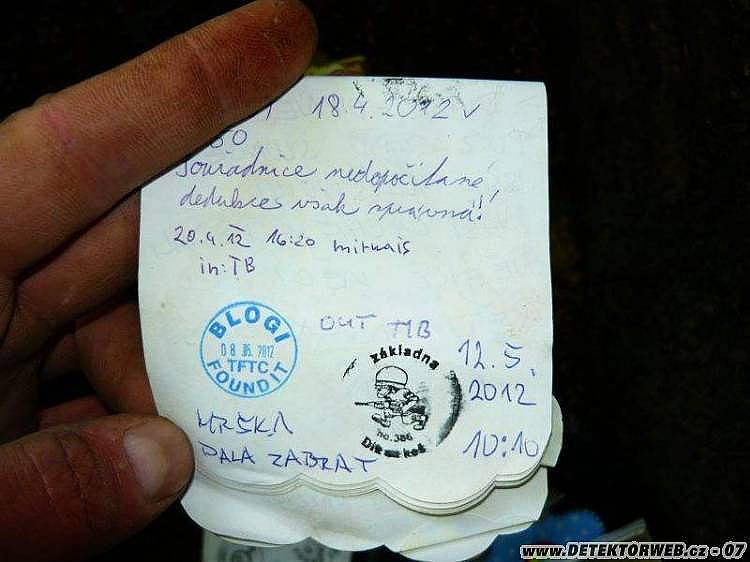 18.4.2012 v
Souřadnice nedopočítané!
dedukce však správná!
20.4.12 16:20 mirnais
in: TB
OUT MB
BLOGI
08. 05. 2012
TFTC
FOUND IT
základna
no.386
12.5.
2012
10:10
MRŠKA
DALA ZABRAT
www.DETEKTORWEB.cz - 07